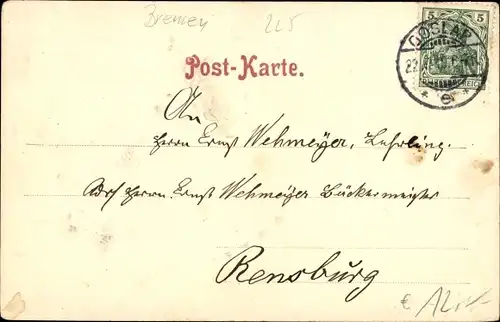 Bremen 225
5 5
GOSLAR
22
* e *
Post-Karte.
An
Herrn Ernst Wehmeyer, Lehrling.
Adr. Herrn Ernst Wehmeyer Bäckermeister
Rensburg
€ 12,-